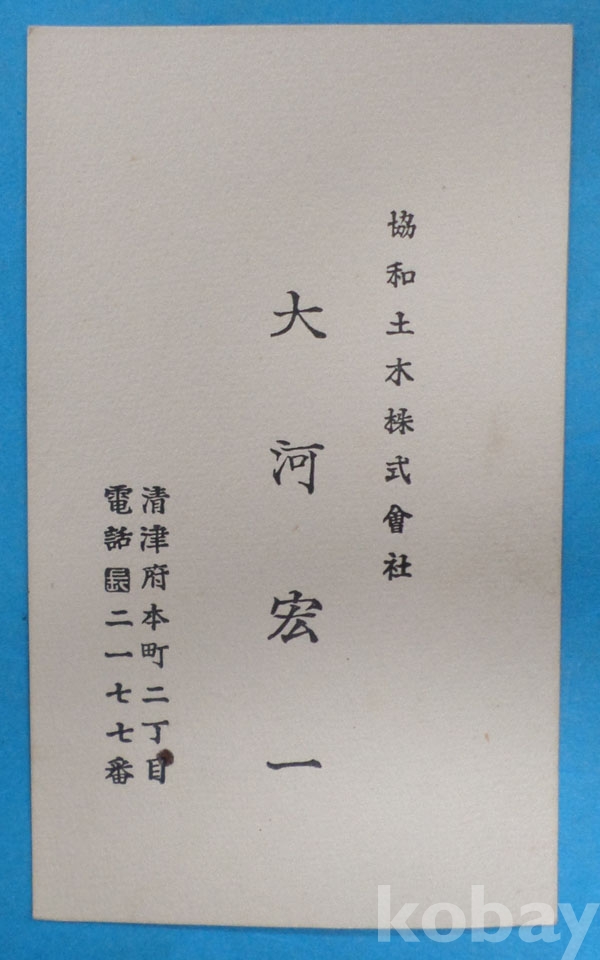 協和土木株式會社
大河宏一
清津府本町二丁目
電話長二一七七番
kobay